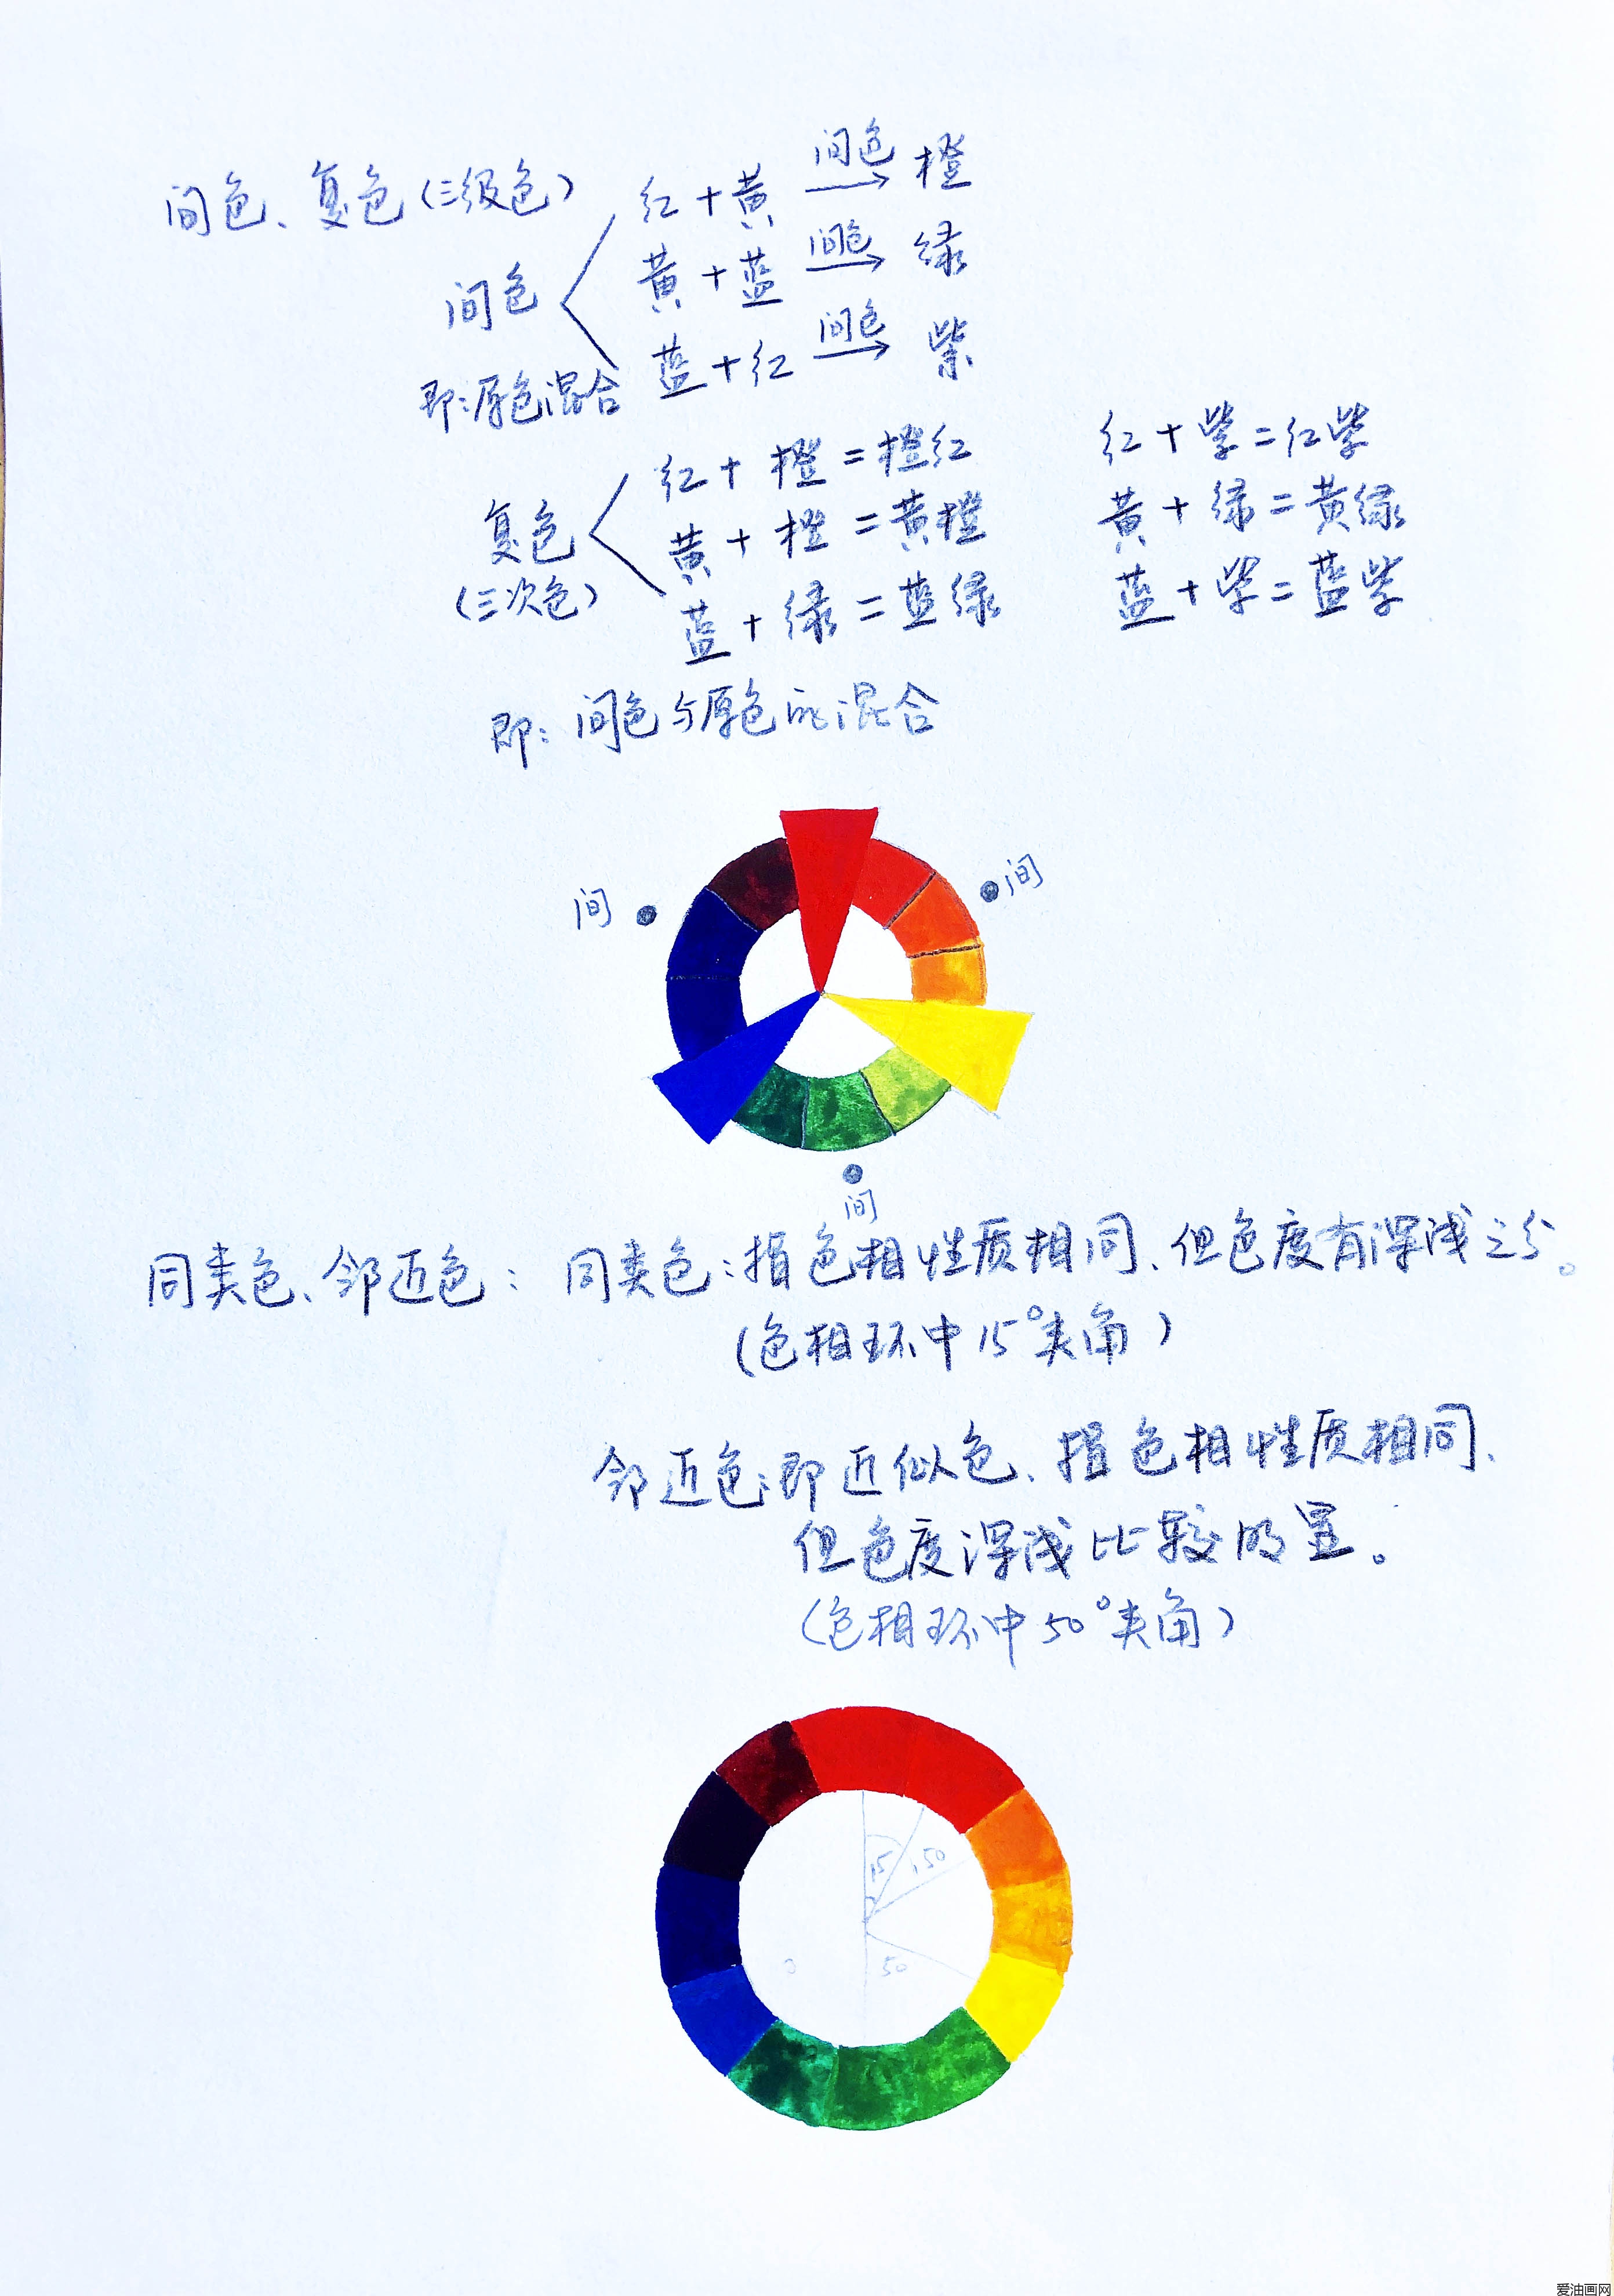 间色、复色(三级色)
间色
即:原色混合
红+黄 间色→ 橙
黄+蓝 间色→ 绿
蓝+红 间色→ 紫
复色
(三次色)
红+橙=橙红
黄+橙=黄橙
蓝+绿=蓝绿
红+紫=红紫
黄+绿=黄绿
蓝+紫=蓝紫
即:间色与原色的混合
间
间
间
同类色、邻近色: 同类色:指色相性质相同、但色度有深浅之分。
(色相环中15°夹角)
邻近色:即近似色、指色相性质相同、
但色度深浅比较明显。
(色相环中50°夹角)
15
50
50
爱油画网